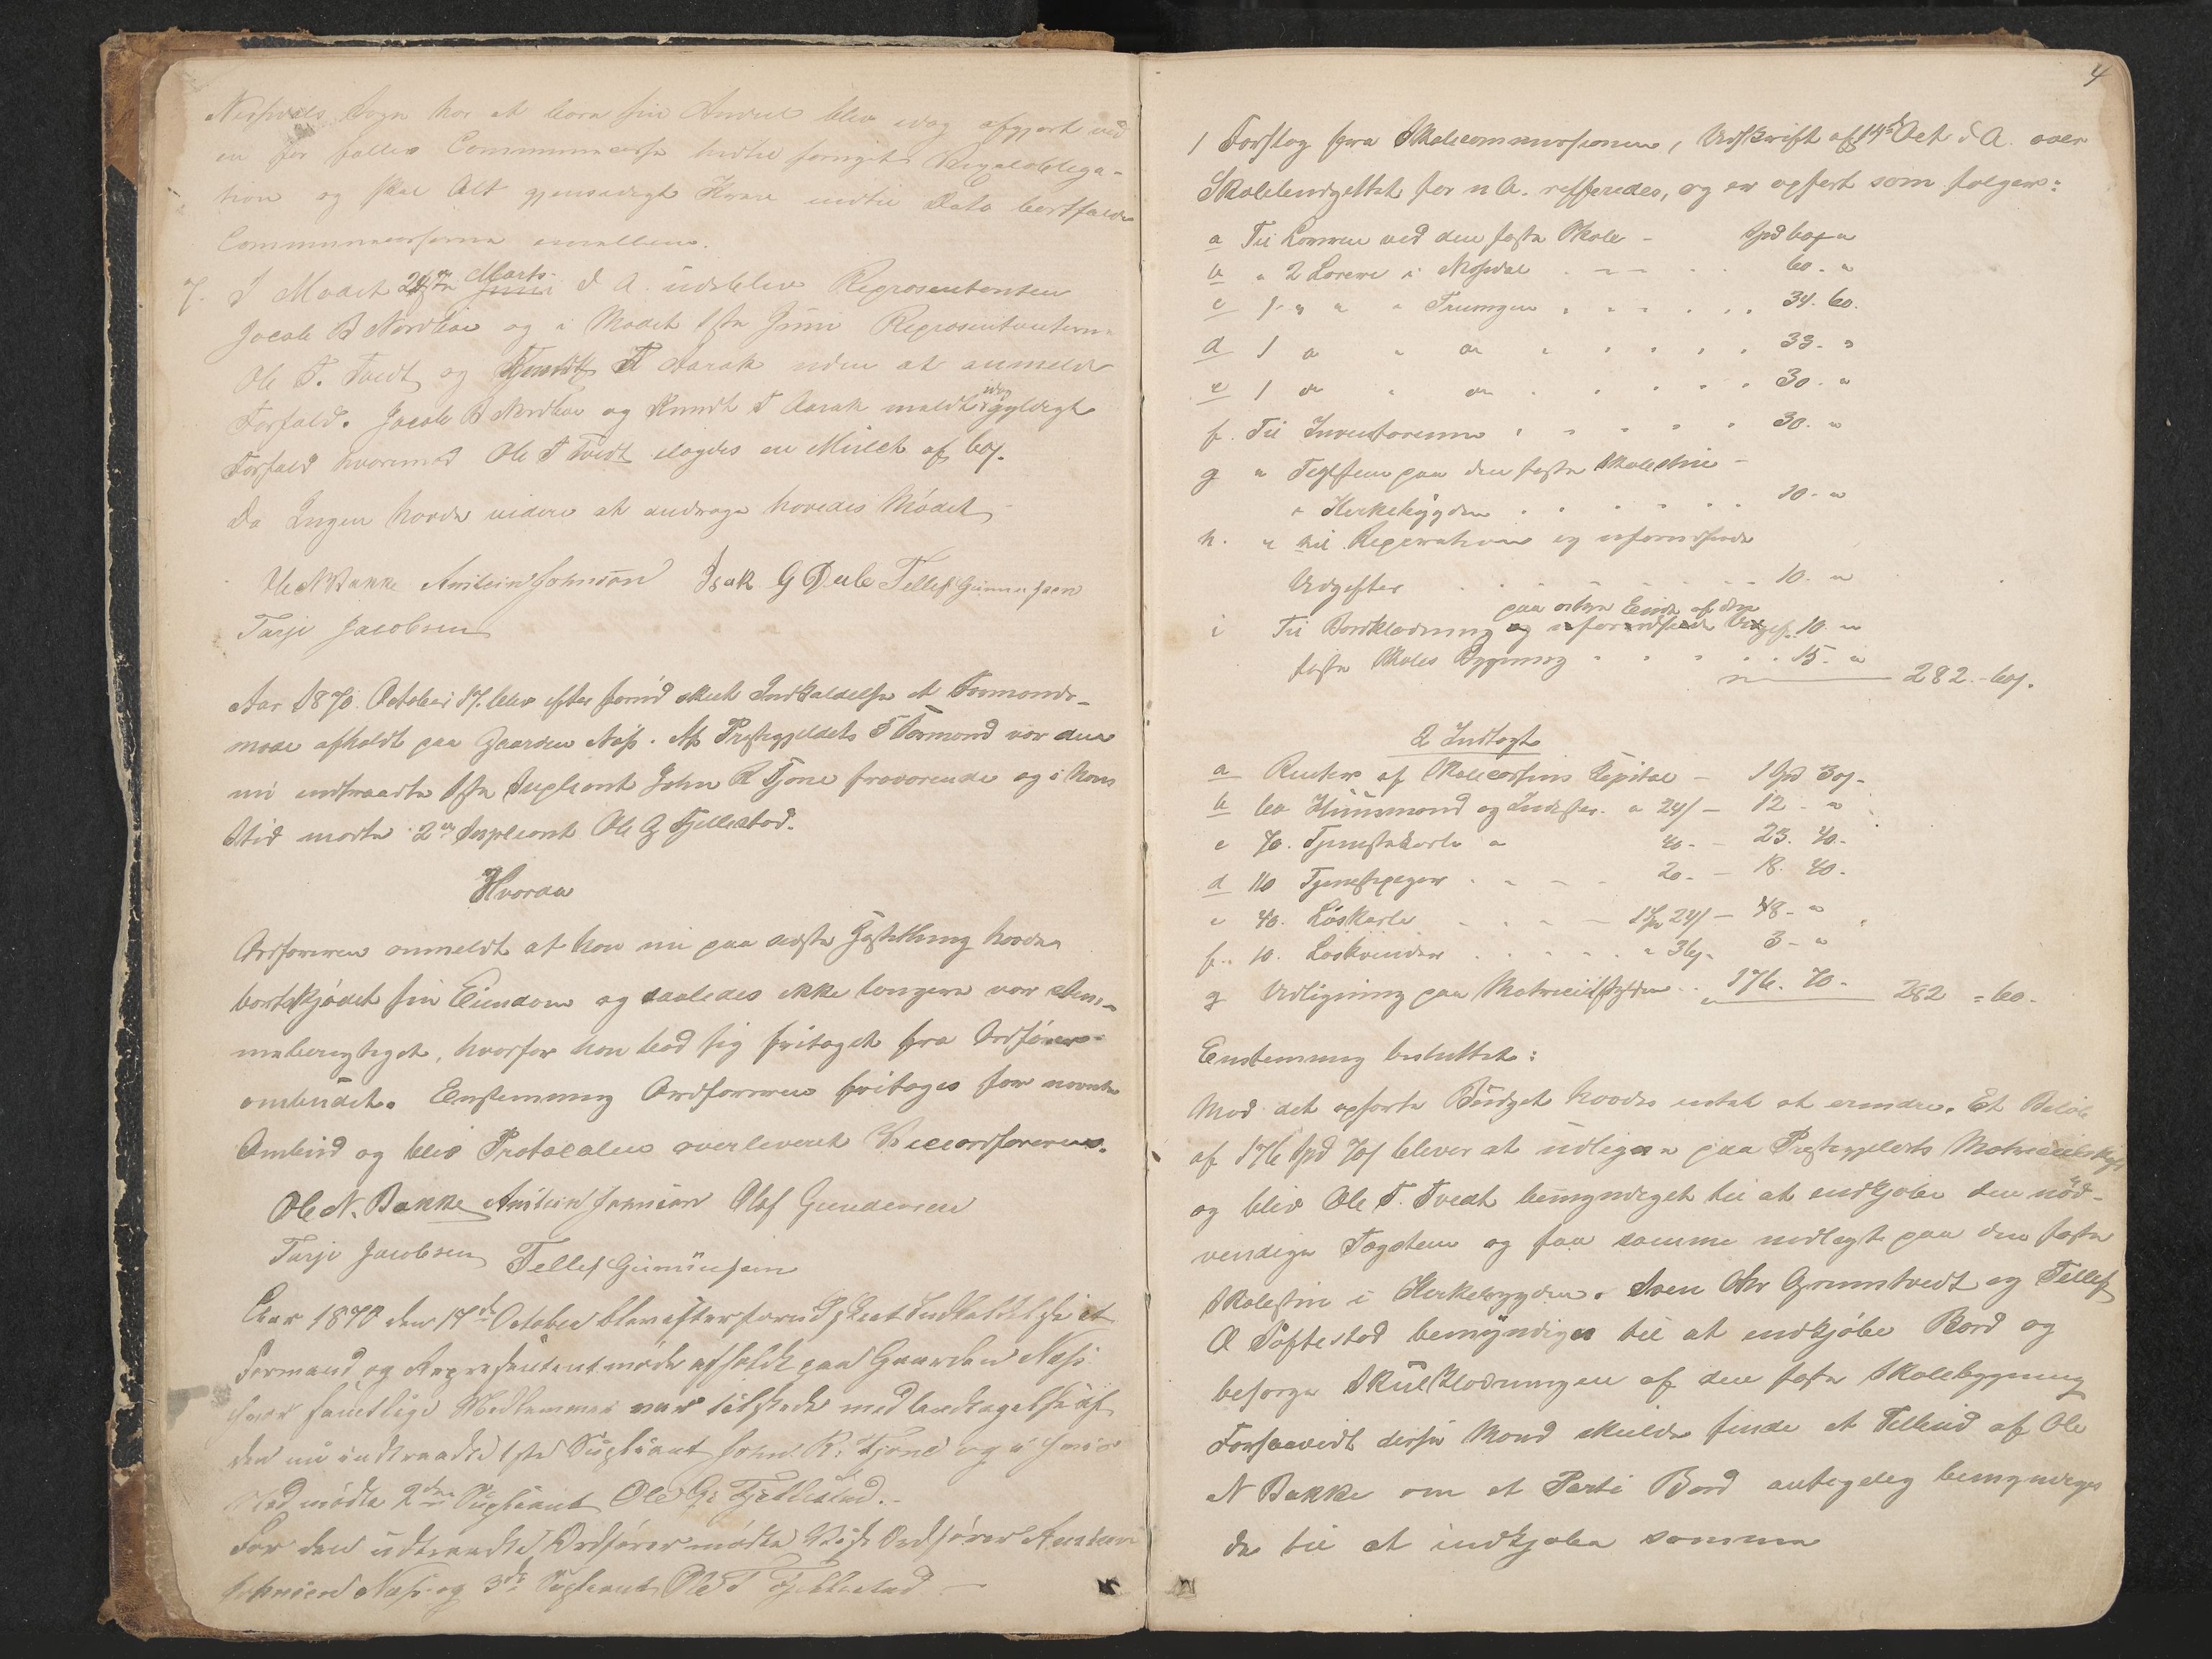 Nissedals Sogn har at bære sin Andeel blev idag afgjort ved
en for fælles Communecasse hertil
tion og skal Alt gjensidigt Krav indtil Dato bortfalde
Communecasserne imellem.
7. I Mødet 24de Marts d. A. udeblev Representanten
Jacob B Nordbøe og i Mødet 1ste Juni Representanterne
Ole T. Tvedt og T Aarak uden at anmelde
Forfald. Jacob B Nordbøe og Knudt T Aarak meldte idag gyldigt
Forfald hvorimod Ole T Tvedt ilagdes en Mulct af 60 s.
Da Ingen havde videre at andrage hævedes Mødet
Ole N Bakke Anstein Johnsøn Isak G Dule Tellef Gunnufsen
Tarje Jacobsen
Aar 1870 October 17. blev efter forud skeet Indkaldelse et Formands-
møde afholdt paa Gaarden Næs. Af Præstegjeldets Formænd var den
nu indtraadte 1ste Supleant John R Tjøne fraværende og i hans
Sted mødte 2den Supleant Ole G Fjellestad.
Hvorda
Ordføreren anmeldt at han nu paa sidste havde
bortskjødet sin Eiendom og saaledes ikke længere var stem-
meberegtiget, hvorfor han bad sig fritaget fra Ordfører-
ombudet. Enstemmig Ordføreren fritages for nævnte
Ombud og blev Protocolen overleveret Viceordføreren.
Ole N. Bakke Anstein Johnsøn Olaf Gundersen
Tarje Jacobsen Tellef Gunnufsen
Aar 1870 den 17de October blev efter forud skeet Indkaldelse et
Formand og Representantmøde afholdt paa Gaarden Næs
hvor samtlige Medlemmer var tilstede med Undtagelse af
den nu indtraadte 1ste Supleant John R. Tjøne og i hans
Sted mødte 2den Supleant Ole G. Fjellestad.
For den udtraadte Ordfører mødte Vice Ordfører Anstein
Johnsen Næs og 3de Supleant Ole T Fjellestad
4
1 Forslag fra Skolecommissionen, Udskrift af 14de Oct d. A. over
Skolebudgettet for n A. refferedes, og er opført som følger:
a Til Læreren ved den faste Skole - Spd 60 "
b " 2 Lærere i Nissedal 60. "
c 1 " " " Treungen 34. 60.
d 1 " " " 33. "
e 1 " " " 30. "
f. Til Inventarium 30. "
g " Teglsteen paa den faste Skolestue
i Kirkebygden 10. "
h. " til Reperationer og uforudseede
Udgifter 10. "
i Til Bordklædning paa østre Ende af den og uforudseede Udgif. 10 "
faste Skoles Bygning 15. "
282.-60 s.
2 Indtægt
a Renter af Skolecassens Kapital - 1 Spd 30 s.
b 60 Huusmænd og Inderster a 24 s - 12 - "
c 70. Tjenestekarle a 40 - 23. 40.
d 110 Tjenestepiger 20. - 18. 40.
e 40. Løskarle 1 Spd 24 s - 48 - "
f. 10. Løskvinder " 36 s. 3 - "
g Udligning paa Matriculskylden 176. 70. 282 = 60.
Enstemmig besluttet:
Mod det opførte Budget havdes intet at erindre. Et Beløb
af 176 Spd 70 s bliver at udligne paa Præstegjeldets Matriculskyld
og blev Ole T. Tvedt bemyndiget til at indkjøbe den nød-
vendige Tagsteen og faa samme nedlagt paa den faste
Skolestue i Kirkebygden. Sven Chr Grønstvedt og Tellef
O Tøftestad bemyndiges til at indkjøbe Bord og
besørge Skuldklædningen af den faste Skolebygning
Forsaavidt disse Mænd skulde finde et Tilbud af Ole
N Bakke om et Parti Bord antageleg bemyndiges
de til at indkjøbe samme